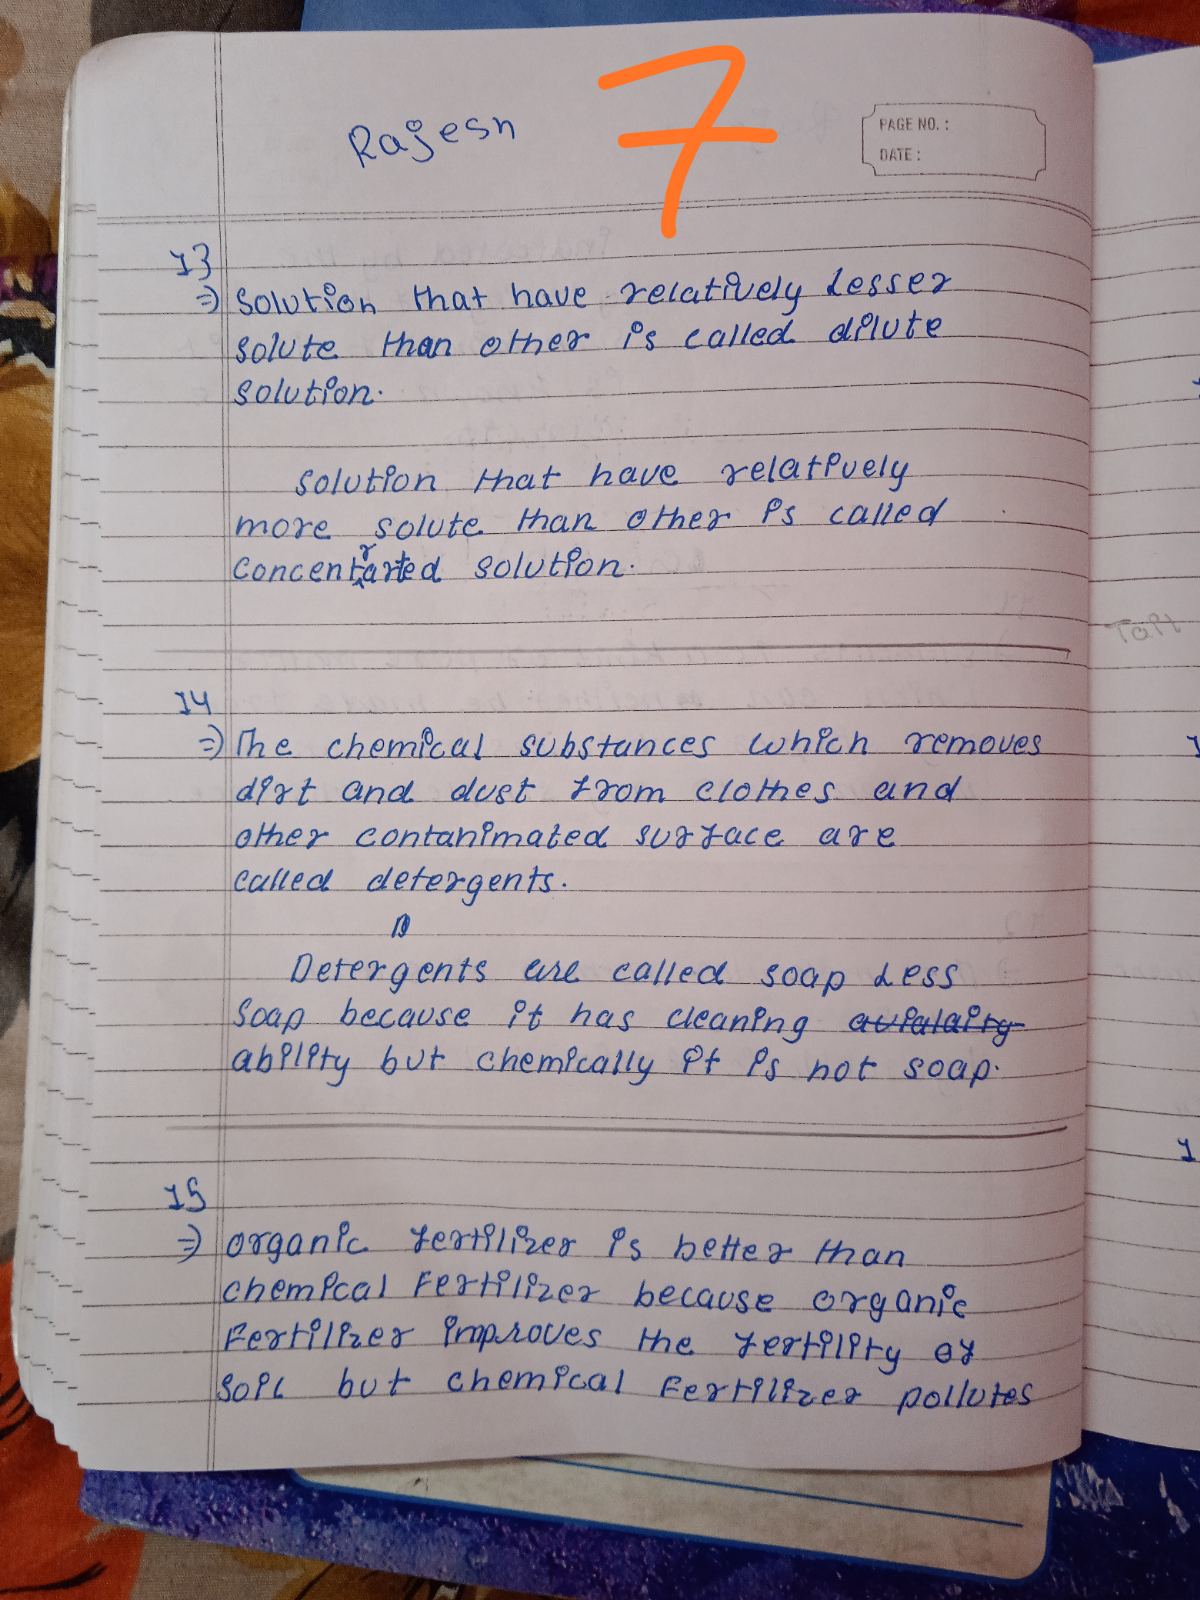 Rajesh
7
PAGE NO. :
DATE :
13
⇒ Solution that have relatively Lesser
solute than other is called dilute
solution.
Solution that have relatively
more solute than other is called
Concentrarted solution.
14
⇒ The chemical substances which removes
dirt and dust from clothes and
other contanimated surface are
called detergents.
Detergents are called soap Less
Soap because it has cleaning avialairy
ability but chemically it is not soap.
15
⇒ organic fertilizer is better than
chemical Fertilizer because organic
Fertilizer improves the fertility of
soil but chemical Fertilizer pollutes